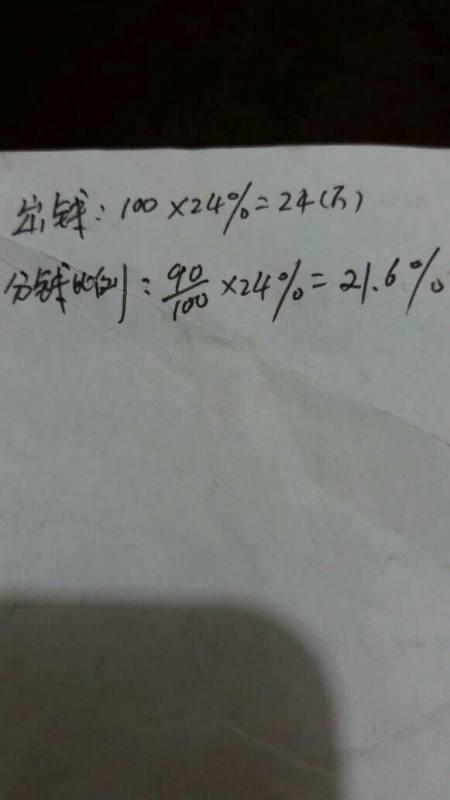 出钱：100×24%=24(万)
分钱比例：90/100×24%=21.6%